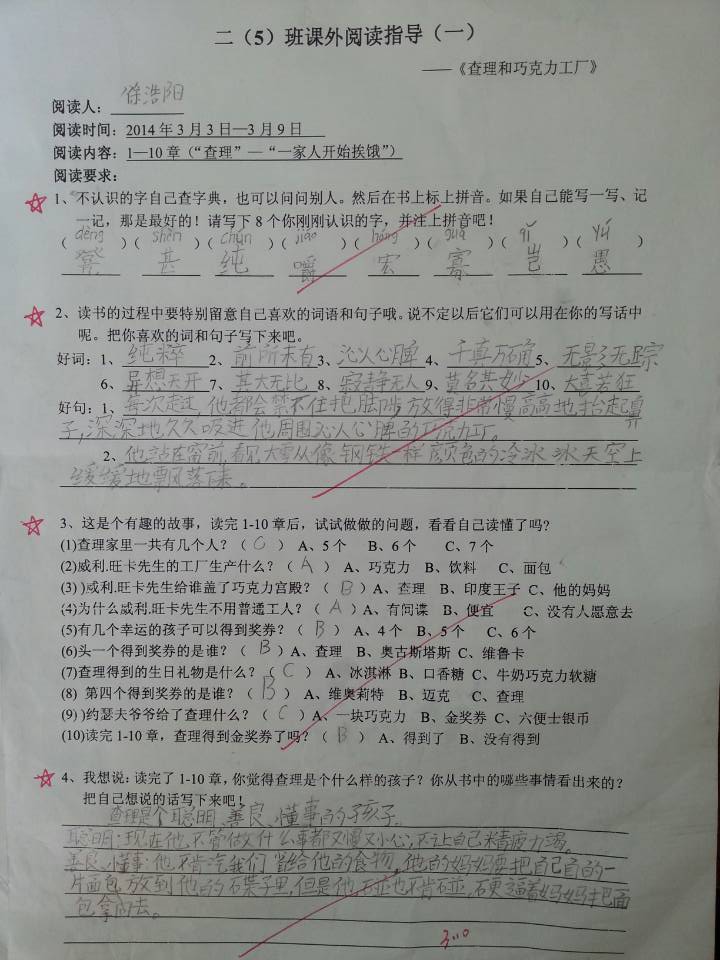 二（5）班课外阅读指导（一）
——《查理和巧克力工厂》
阅读人：徐浩阳
阅读时间：2014年3月3日—3月9日
阅读内容：1—10章（“查理”—“一家人开始挨饿”）
阅读要求：
1、不认识的字自己查字典，也可以问问别人。然后在书上标上拼音。如果自己能写一写、记
一记，那是最好的！请写下8个你刚刚认识的字，并注上拼音吧！
（dèng）（shèn）（chún）（jiáo）（hóng）（guǎ）（qǐ）（yú）
凳 甚 纯 嚼 宏 寡 岂 愚
2、读书的过程中要特别留意自己喜欢的词语和句子哦。说不定以后它们可以用在你的写话中
呢。把你喜欢的词和句子写下来吧。
好词：1、纯粹 2、前所未有 3、沁人心脾 4、千真万确 5、无影无踪
6、异想天开 7、其大无比 8、寂静无人 9、莫名其妙 10、大喜若狂
好句：1、每次走过，他都会禁不住把脚步放得非常慢高高地抬起鼻
子，深深地久久吸进他周围沁人心脾的巧克力。
2、他站在窗前，看见大雪从像钢铁一样颜色的冷冰冰天空上
缓缓地飘落下来。
3、这是个有趣的故事，读完1-10章后，试试做做的问题，看看自己读懂了吗?
(1)查理家里一共有几个人？（C） A、5个 B、6个 C、7个
(2)威利.旺卡先生的工厂生产什么？（A） A、巧克力 B、饮料 C、面包
(3) )威利.旺卡先生给谁盖了巧克力宫殿？（B）A、查理 B、印度王子 C、他的妈妈
(4)为什么威利.旺卡先生不用普通工人？（A）A、有间谍 B、便宜 C、没有人愿意去
(5)有几个幸运的孩子可以得到奖券？（B） A、4个 B、5个 C、6个
(6)头一个得到奖券的是谁？（B）A、查理 B、奥古斯塔斯 C、维鲁卡
(7)查理得到的生日礼物是什么？（C） A、冰淇淋 B、口香糖 C、牛奶巧克力软糖
(8) 第四个得到奖券的是谁？（B） A、维奥莉特 B、迈克 C、查理
(9) )约瑟夫爷爷给了查理什么？（C）A、一块巧克力 B、金奖券 C、六便士银币
(10)读完1-10章，查理得到金奖券了吗？（B） A、得到了 B、没有得到
4、我想说：读完了1-10章，你觉得查理是个什么样的孩子？你从书中的哪些事情看出来的？
把自己想说的话写下来吧！
查理是个聪明、善良、懂事的孩子。
聪明：现在他，不管做什么事都又慢又小心，不让自己精疲力竭。
善良、懂事：他不肯吃我们省给他的食物，他的妈妈要把自己自的一
片面包放到他的碟子里，但是他碰也不肯碰，硬逼着妈妈把面
包拿回去。